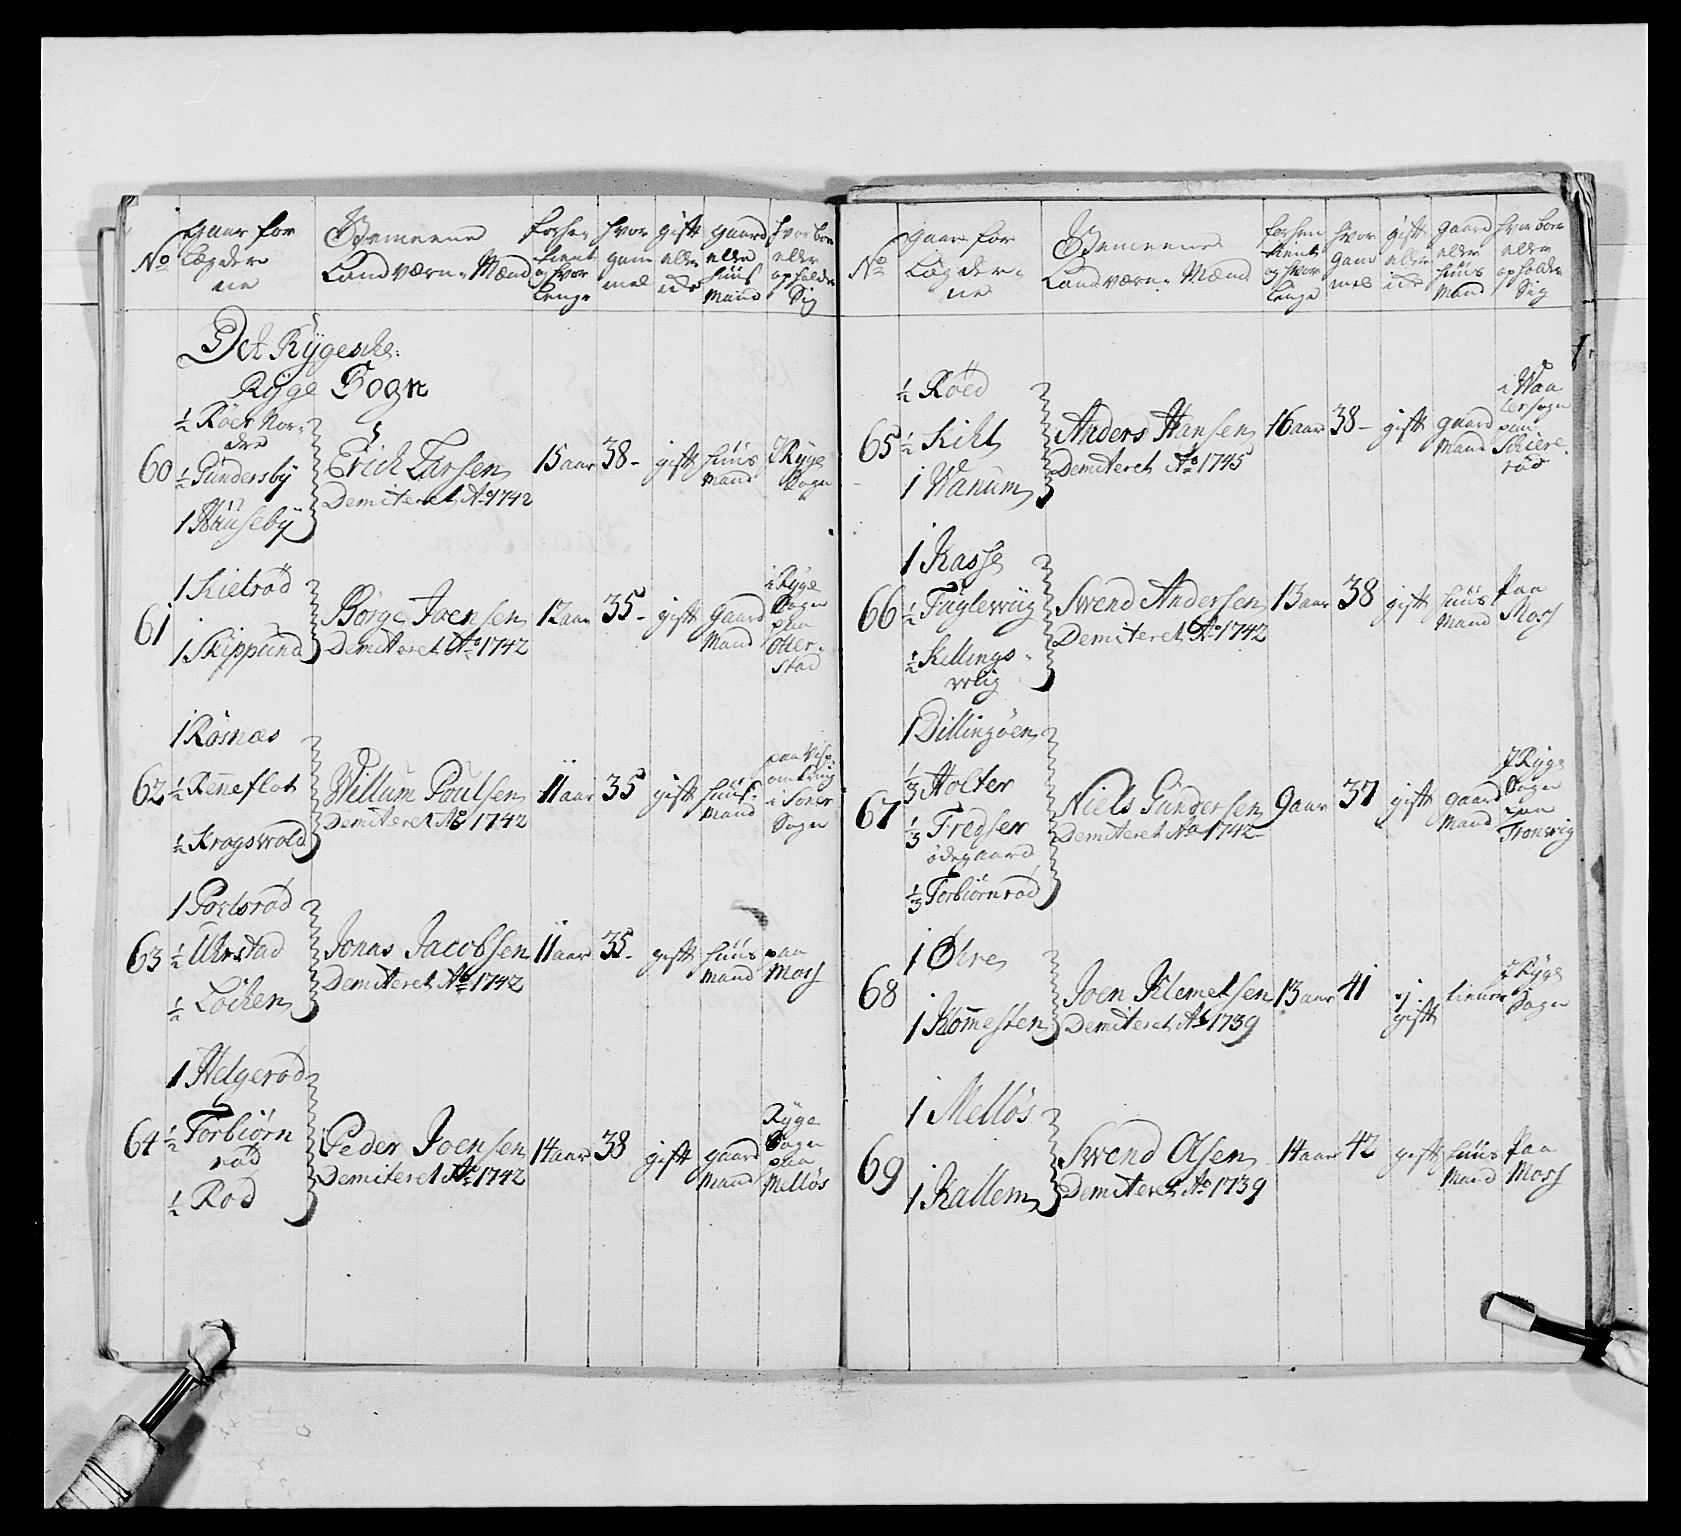 No
gaar for
Lægder
ne
Gemeene
Landværn-Mænd
forhen
tient
og hvor
lenge
hvor
gam
mel
gift
eller
ide
gaard
eller
huus
Mand
hvor boe
eller
opholder
Sig
Det Rygesche
Ryge Sogn
1/2 Röer Nor-
dre
60 1/2 Gundersby
1 Huuseby
Erich Larsen
Demiteret Ao 1742
15 aar 38- gift huus
Mand
J Ryge
Sogn
1 Kielröd
61
1 Skippund
Börge Joensen
Demiteret Ao 1742
12 aar 35- gift gaard
Mand
i Ryge
Sogn
paa
Otter-
stad
1 Rösnæs
62 1/2 Renneflot
1/2 Krogsvold
Willum Poulsen
Demiteret Ao 1742
11 aar 35 gift huus-
Mand
i Soner
Sogn
1 Poelsröd
63 1/2 Uhrstad
1/2 Löcken
Jonas Jacobsen
Demiteret Ao 1742
11 aar 35- gift huus
Mand
paa
Moss
1 Helgeröd
64 1/2 Torbiörn
röd
1/2 Röd
Peder Joensen
Demiteret Ao 1742
14 aar 38 gift gaard
Mand
Ryge
Sogn
paa
Mellös
No
gaar for
Lægder-
ne
Gemeene
Landværn-Mænd
forhen
tient
og hvor
lenge
hvor
gam
mel
gift
eller
ide
gaard
eller
huus
Mand
hvor boer
eller
opholder
Sig
1/2 Röed
65 1/2 Kiht
1 Wanum
Anders Hansen
Demiteret Ao 1745
16 aar 38- gift gaard
Mand
i Waa
ler sogn
paa
Schiere-
röd
1 Kasse
66 1/2 Fuglevviig
1/2 Kellings-
vviig
Svend Andersen
Demiteret Ao 1742
13 aar 38 gift huus
Mand
Paa
Moss
1 Dillingöen
1/3 Holter
67 1/3 Fredser
ödegaard
1/3 Torbiörnröd
Niels Gundersen
Demiteret Ao 1742
9 aar 37 gift gaard
Mand
J Ryge
Sogn
paa
Tronvig
1 Öhre
68
1 Kommesten
Joen Klemetsen
Demiteret Ao 1739
13 aar 41 ej
gift
tiener
J Ryge
Sogn
1 Mellös
69
1 Kallem
Svend Olsen
Demiteret Ao 1739
14 aar 42 gift huus
Mand
Paa
Moss